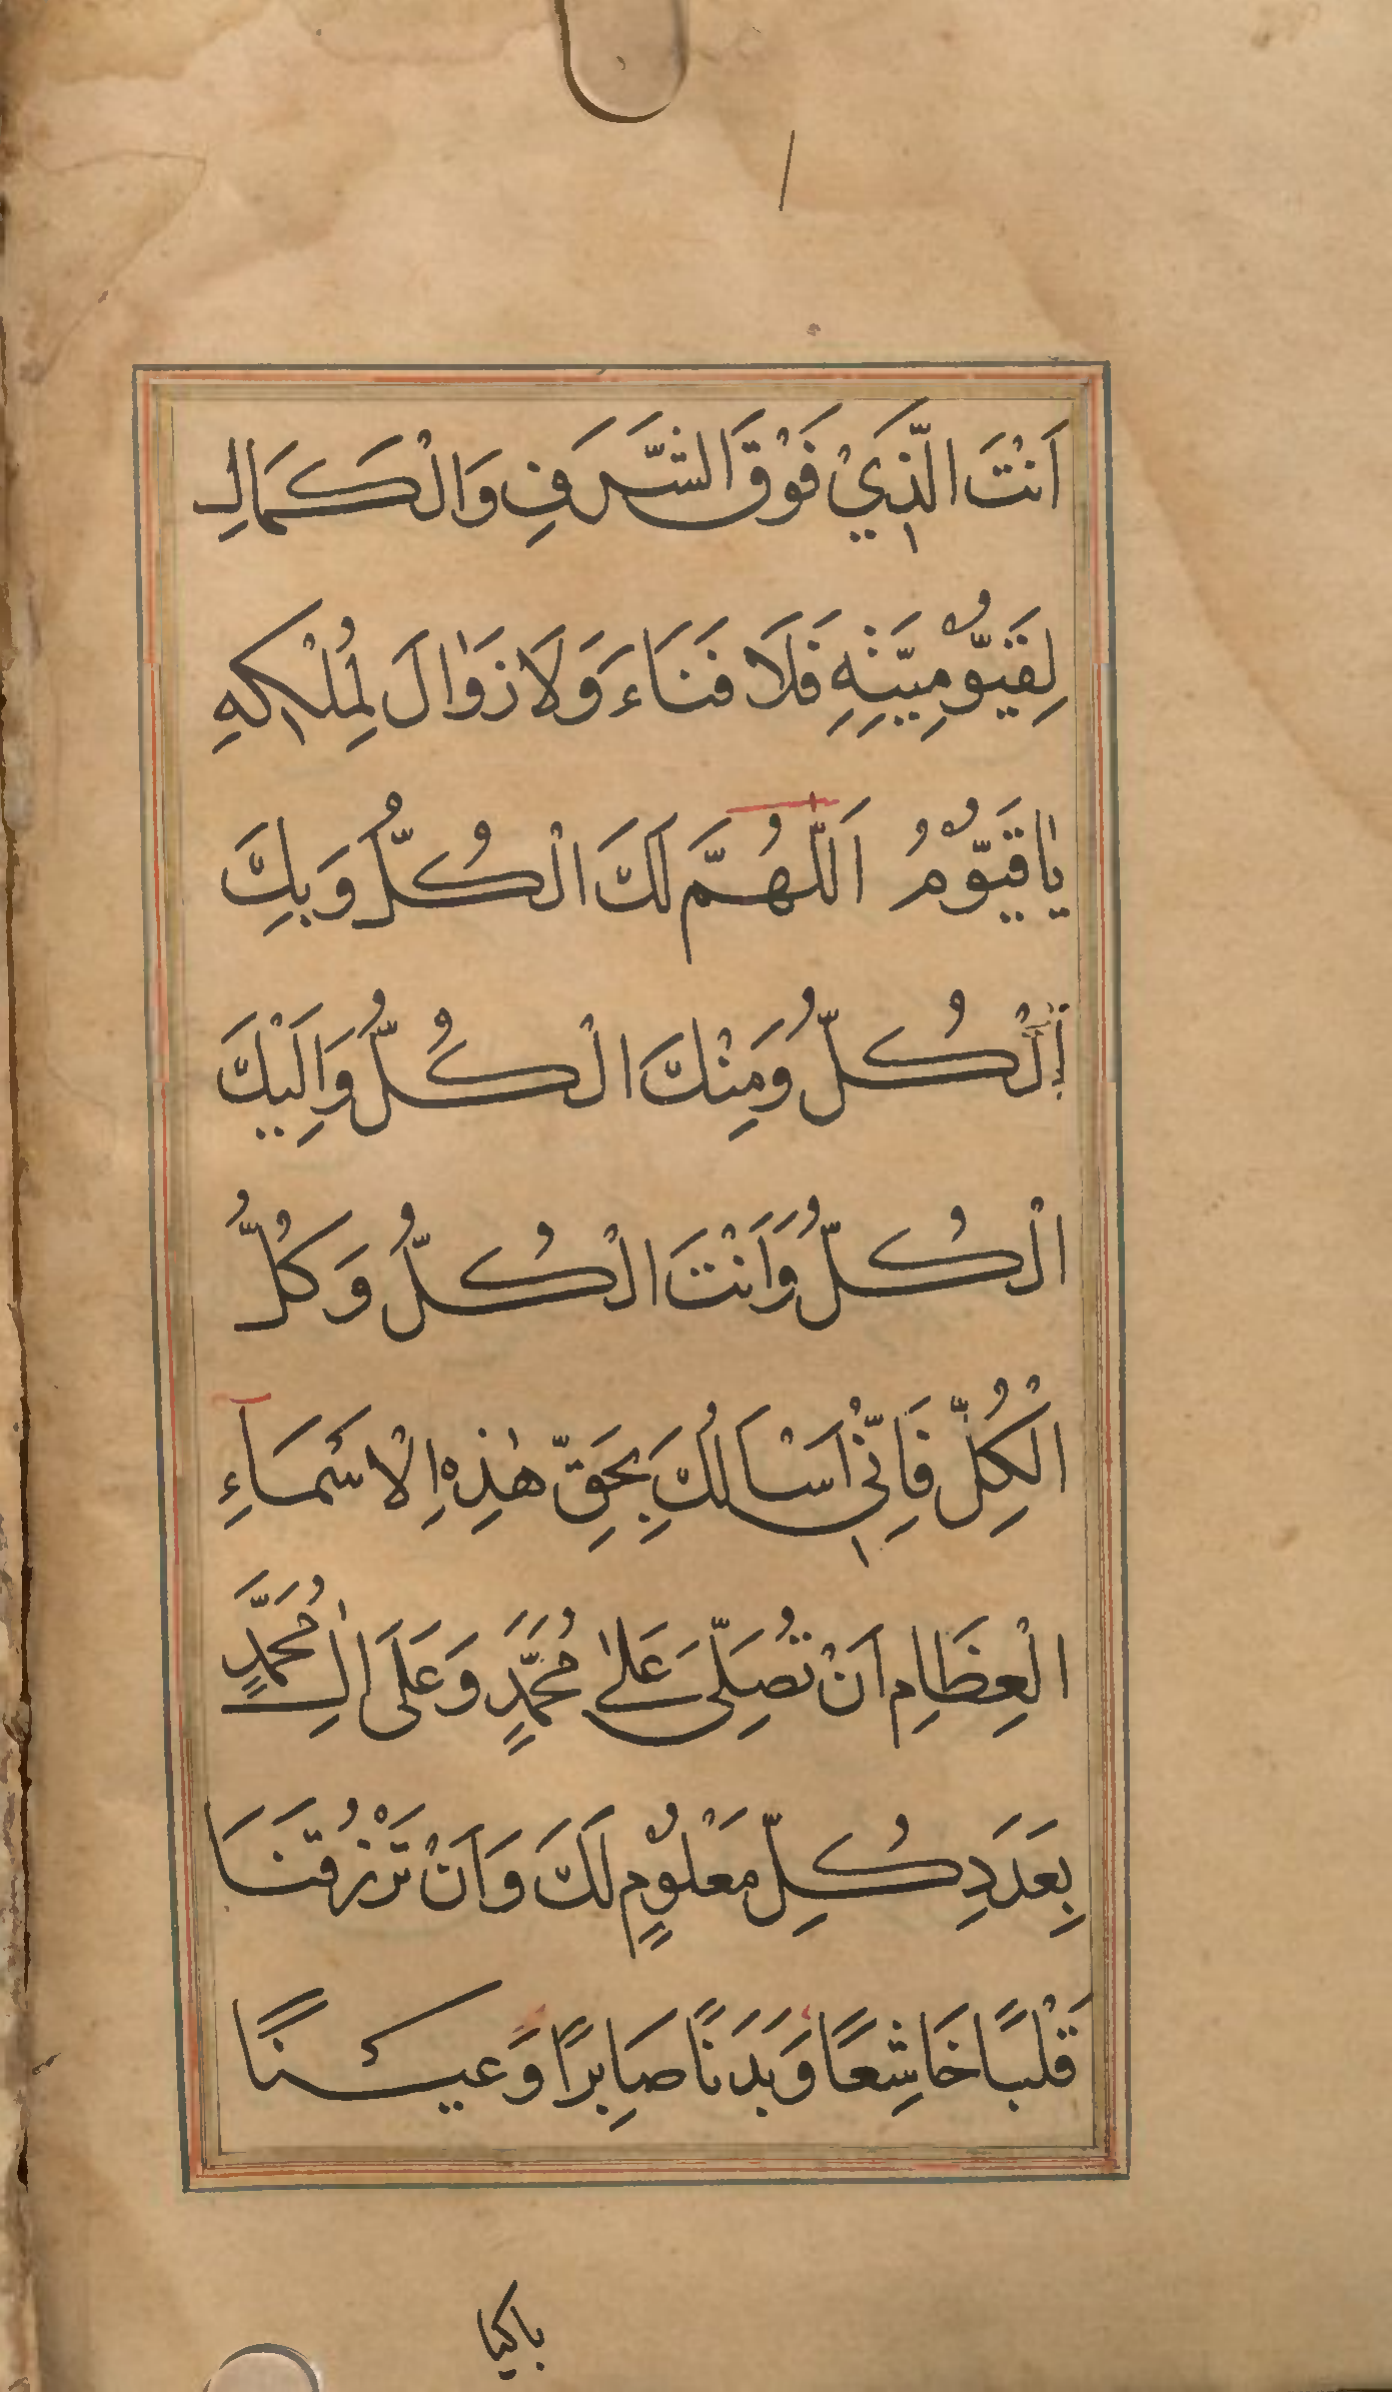 اَنْتَ الَّذِيْ فَوْقَ الشَّرَفِ وَالْكَمَالِ
لِقَيُّوْمِيَّتِهِ فَلَا فَنَاءَ وَلَا زَوَالَ لِمُلْكِهِ
يَاقَيُّوْمُ اَللّٰهُمَّ لَكَ الْكُلُّ وَبِكَ
الْكُلُّ وَمِنْكَ الْكُلُّ وَاِلَيْكَ
الْكُلُّ وَاَنْتَ الْكُلُّ وَكُلُّ
الْكُلِّ فَاِنِّيْ اَسْاَلُكَ بِحَقِّ هٰذِهِ الْاَسْمَاءِ
الْعِظَامِ اَنْ تُصَلِّيَ عَلٰى مُحَمَّدٍ وَعَلَى اٰلِ مُحَمَّدٍ
بِعَدَدِ كُلِّ مَعْلُوْمٍ لَكَ وَاَنْ تَرْزُقَنَا
قَلْبًا خَاشِعًا وَبَدَنًا صَابِرًا وَعَيْنًا
باكيا